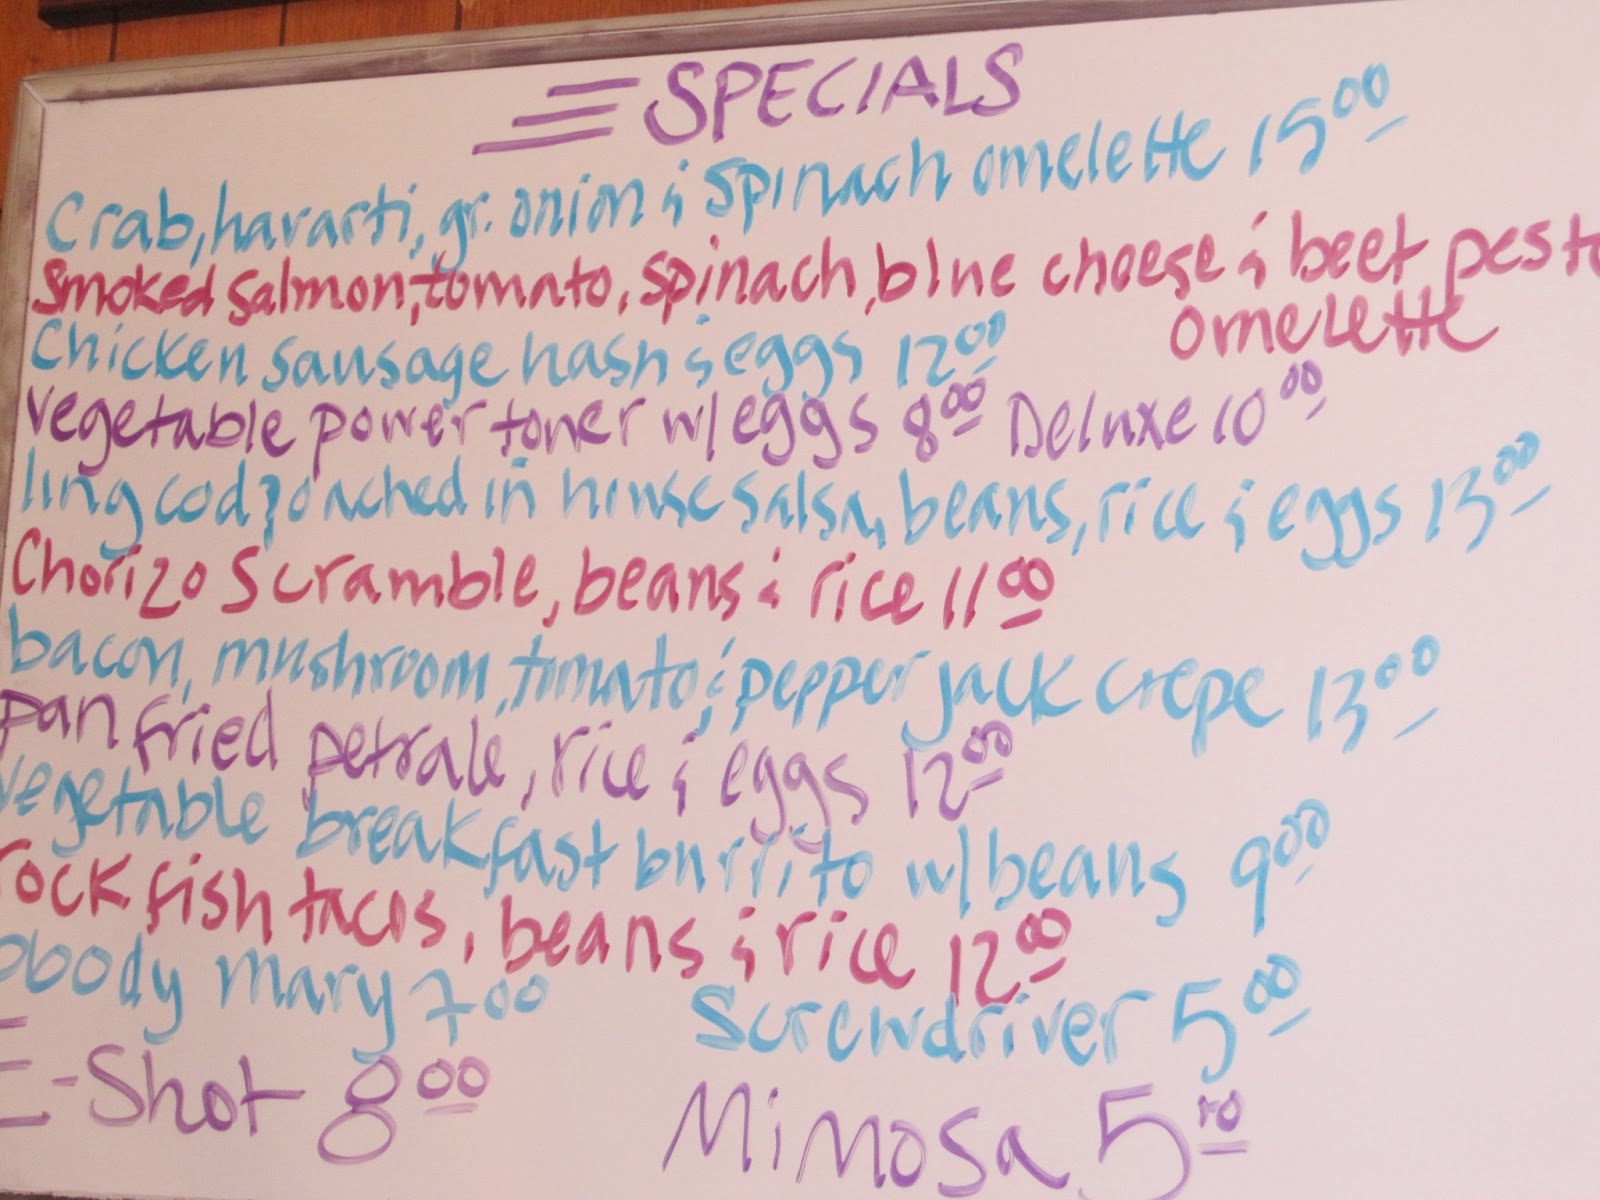 SPECIALS
Crab, havarti, gr. onion & spinach omelette 15.00
Smoked salmon, tomato, spinach, blue cheese & beet pesto
omelette
Chicken sausage hash & eggs 12.00
Vegetable power toner w/ eggs 8.00 Deluxe 10.00
ling cod poached in house salsa, beans, rice & eggs 13.00
Chorizo Scramble, beans & rice 11.00
bacon, mushroom, tomato & pepper jack crepe 13.00
pan fried petrale, rice & eggs 12.00
Vegetable breakfast burrito w/ beans 9.00
rock fish tacos, beans & rice 12.00
body mary 7.00 Screwdriver 5.00
E-Shot 8.00 Mimosa 5